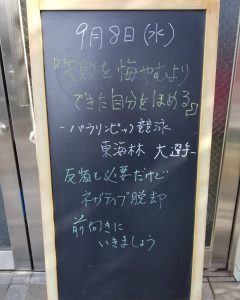 9月8日(水)
『失敗を悔やむより
できた自分をほめる』
-パラリンピック競泳
東海林 大選手-
反省も必要だけど
ネガティブ脱却
前向きに
いきましょう